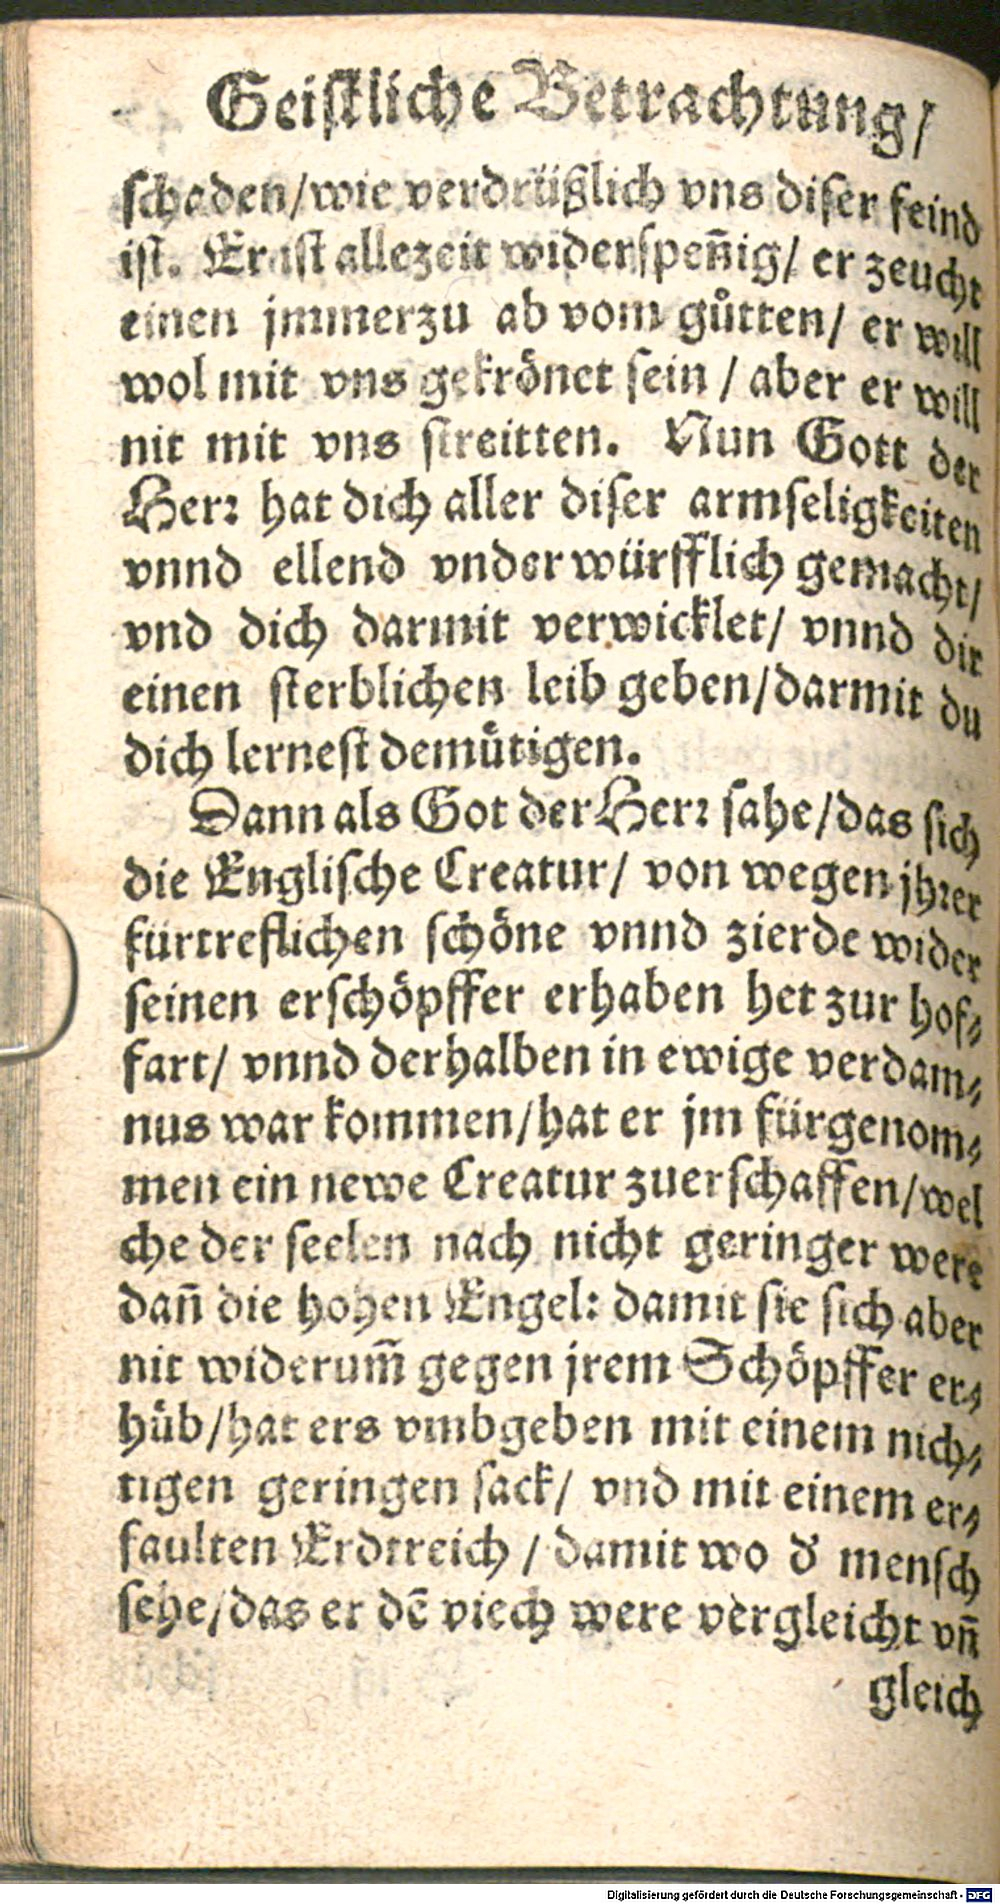 Geistliche Betrachtung/
schaden/wie verdrüßlich vns diser feind
ist. Er ist allezeit widerspen̄ig/ er zeucht
einen jmmerzu ab vom gůtten/ er will
wol mit vns gekrönet sein / aber er will
nit mit vns streitten. Nun Gott der
Herr hat dich aller diser armseligkeiten
vnnd ellend vnderwürfflich gemacht/
vnd dich darmit verwicklet/ vnnd dir
einen sterblichen leib geben/darmit du
dich lernest demütigen.
Dann als Got der Herr sahe/das sich
die Englische Creatur/ von wegen jhrer
fürtreflichen schöne vnnd zierde wider
seinen erschöpffer erhaben het zur hof-
fart/ vnnd derhalben in ewige verdam-
nus war kommen/hat er jm fürgenom-
men ein newe Creatur zuerschaffen/wel
che der seelen nach nicht geringer were
dan̄ die hohen Engel: damit sie sich aber
nit widerum̄ gegen jrem Schöpffer er-
hüb/hat ers vmbgeben mit einem nich-
tigen geringen sack/ vnd mit einem er-
faulten Erdtreich / damit wo d' mensch
sehe/das er dē viech were vergleicht vn̄
gleich
Digitalisierung gefördert durch die Deutsche Forschungsgemeinschaft - DFG